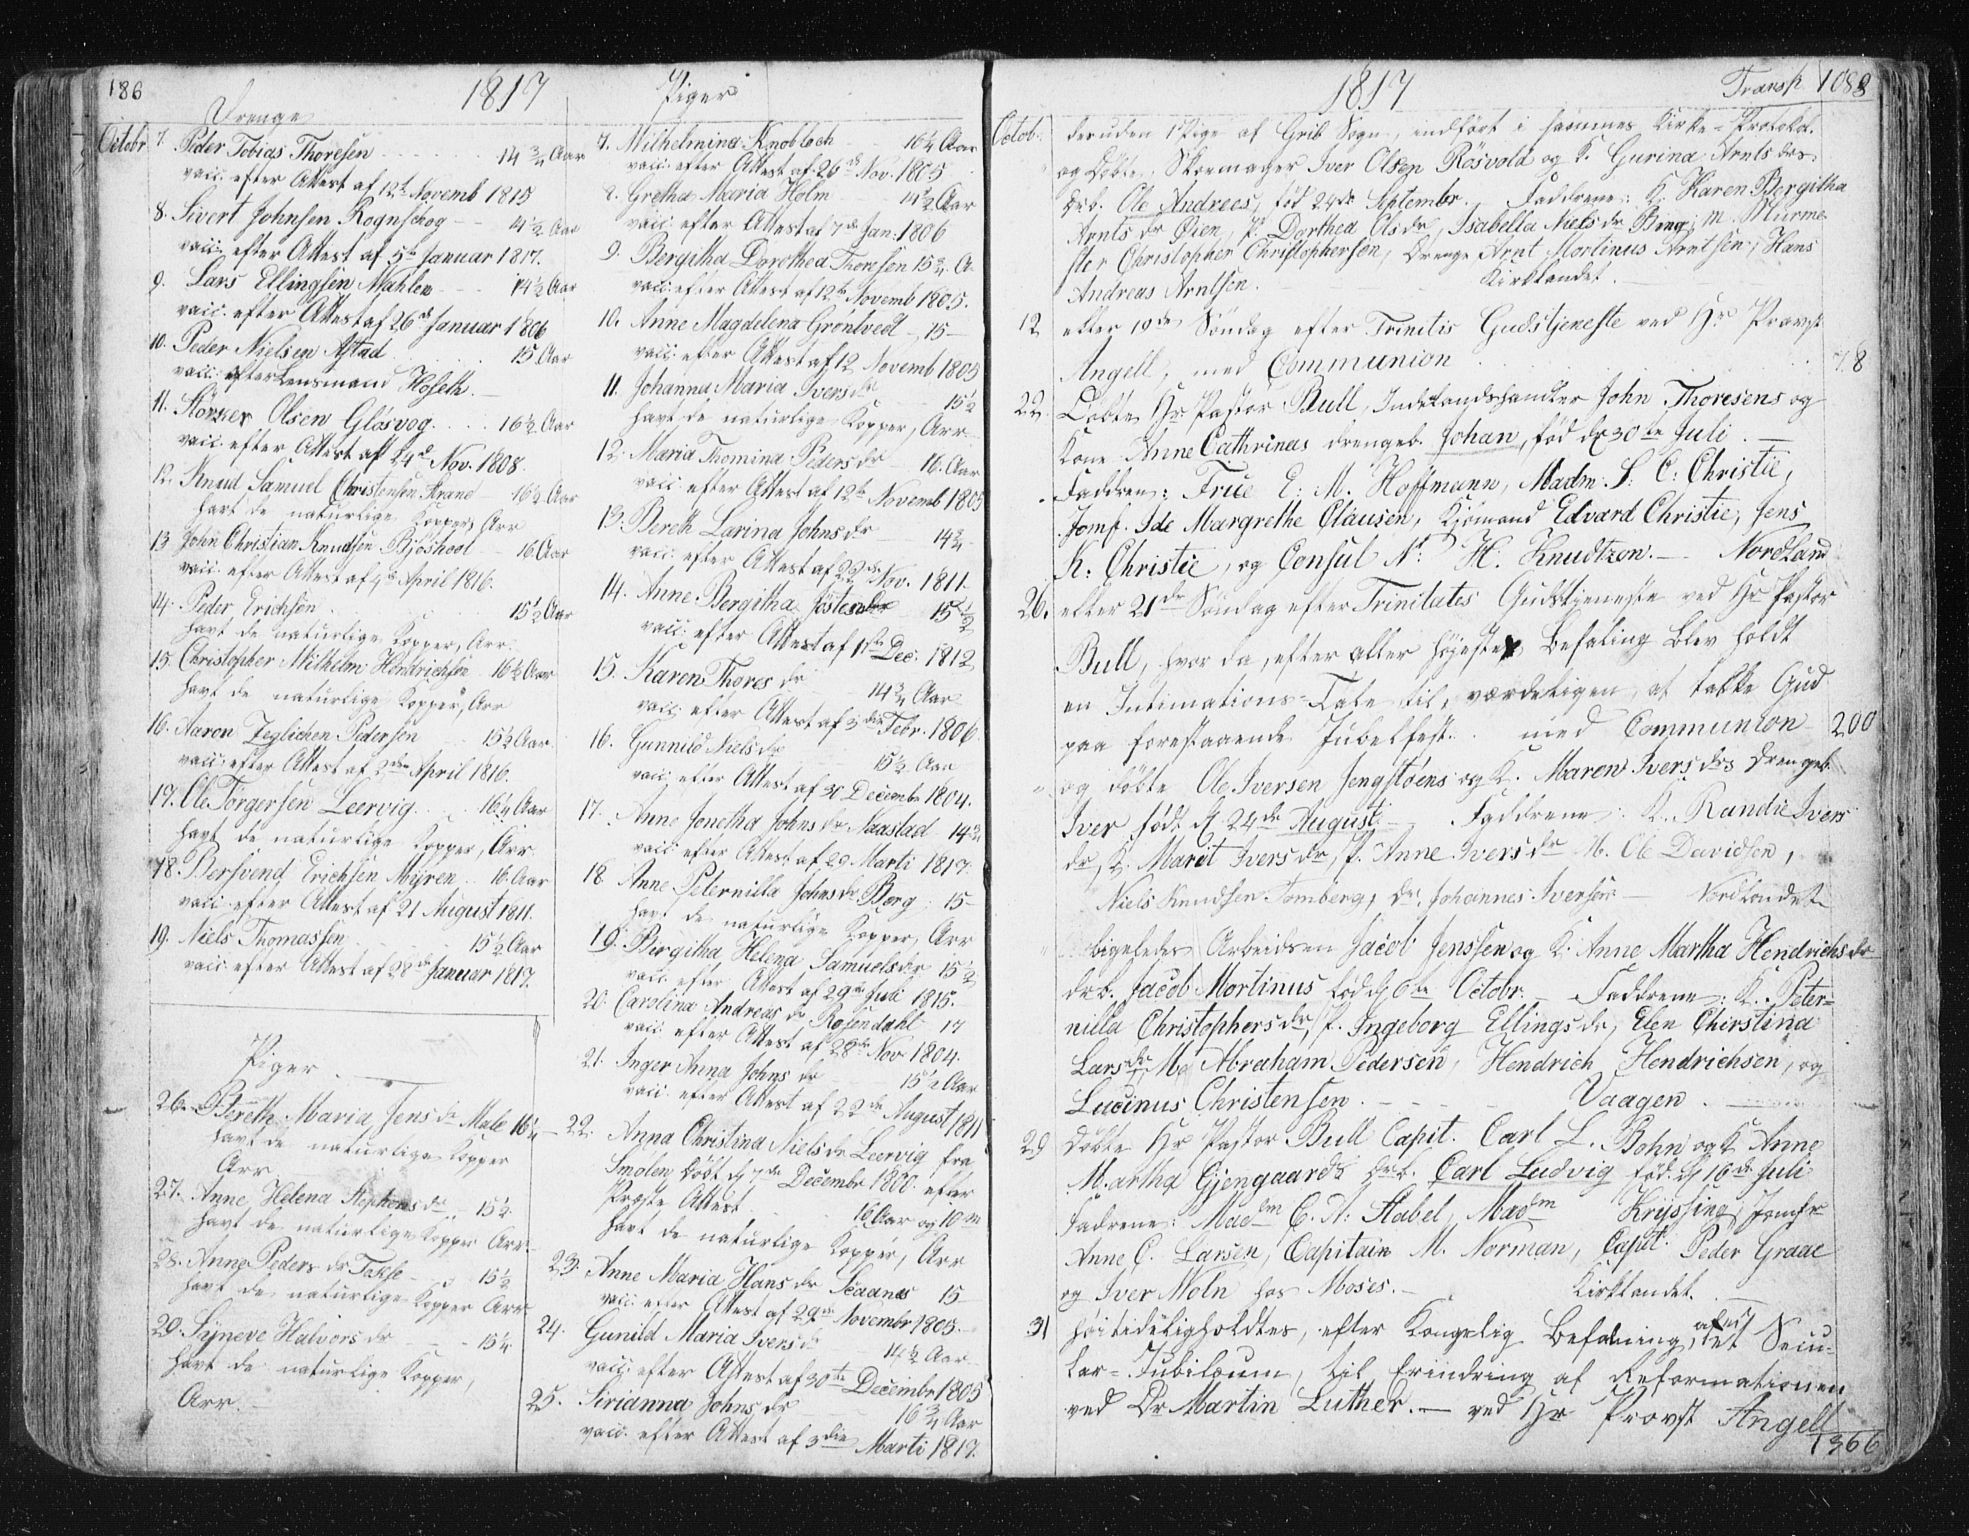 186
1817
Drenge
Octobr 7. Peder Tobias Thoresen 14 3/4 Aar
vacc: efter Attest af 12te Novemb 1815
8. Sivert Johnsen Rognskog 14 1/2 Aar
vacc: efter Attest af 5te Januar 1817.
9. Lars Ellingsen Mahlen 14 1/2 Aar
vacc: efter Attest af 26de Januar 1806
10. Peder Nielsen Astad 15 Aar
vacc: efter Lensmand Hoseth.
11. Störker Olsen Glösvog 16 1/2 Aar
vacc: efter Attest af 24de Nov. 1808.
12. Knud Samuel Christensen Strand 16 1/2 Aar
havt de naturlige Kopper, Arr
13 John Christian Knudsen Bjöshool 16 Aar
vacc: efter Attest af 4de April 1816.
14. Peder Erichsen 15 1/2 Aar
havt de naturlige Kopper, Arr.
15. Christopher Wilhelm Hendrichsen 16 1/2 Aar
havt de naturlige Kopper, Arr
16. Aaron Zeglichen Pedersen 15 1/2 Aar
vacc: efter Attest af 2den April 1816.
17. Ole Torgersen Leervig 16 1/4 Aar
havt de naturlige Kopper, Arr
18. Bersvend Erichsen Myren 16 Aar
vacc: efter Attest af 21 August 1811.
19. Niels Thomassen 15 1/2 Aar
vacc: efter Attest af 28de Januar 1817.
Piger
26. Bereth Maria Jens dr Male 16 1/4
havt de naturlige Kopper
Arr
27. Anne Helena Stephens dr 15 1/2
havt de naturlige Kopper Arr
28. Anne Peders dr Takse 15 1/2
havt de naturlige Kopper Arr
29. Syneve Halvors dr 15 1/4
havt de naturlige Kopper,
Arr.
Piger
7. Wilhelmina Knobloch 16 1/4 Aar
vacc: efter Attest af 26de Nov. 1805
8. Gretha Maria Holm 14 1/2 Aar
vacc: efter Attest af 7de Jan: 1806
9. Bergitha Dorothea Thoresen 15 3/4 A.
vacc: efter Attest af 12te Novemb 1805.
10. Anne Magdelena Gröntvedt 15
vacc: efter Attest af 12 Novemb 1805
11. Johanna Maria Ivers dr 15 1/2
havt de naturlige Kopper, Arr
12. Maria Thomina Peders dr 16 Aar
vacc: efter Attest af 12te Novemb 1805
13. Bereth Larina Johns dr 14 3/4
vacc: efter Attest af 22de Nov. 1811.
14. Anne Bergitha Jöstensdr 15 1/2
vacc: efter Attest af 11te Dec: 1812
15. Karen Thores dr 14 3/4 Aar
vacc: efter Attest af 3die Febr. 1806
16. Gunnild Niels dr 15 1/2 Aar
vacc: efter Attest af 30 Decembr 1804.
17. Anne Jonetha Johns dr Naastad 14 3/4
vacc: efter Attest af 29 Marti 1817.
18. Anne Peternilla Johns dr Berg 15
havt de naturlige Kopper, Arr
19. Birgitha Helena Samuelsdr 15 1/2
vacc: efter Attest af 29de Juli 1815.
20. Carolina Andreas dr Rosendahl 17
vacc: efter Attest af 28de Nov 1804.
21. Inger Anna Johns dr 15 1/2 Aar
vacc: efter Attest af 22de August 1811
22. Anna Christina Niels dr Leervig fra
Smolen, döbt d 7de Decembr 1800. efter
Præste Attest 16 Aar og 10 m
havt de naturlige Kopper, Arr
23. Anne Maria Hans dr 15
vacc: efter Attest af 29de Novembr 1805.
24. Gunild Maria Ivers dr 14 1/2 Aar
vacc: efter Attest af 30te Decembr 1805
25. Sirianna Johns dr 16 3/4 Aar
vacc: efter Attest af 3die Marti 1817.
1817
Transp 1088
Octob: deruden 1 Pige af Grib Sogn, indfört i sammes Kirke-Protokol.
og döbte, Skoemager Iver Olsen Rösvold og K. Gurina Arnts drs
drb. Ole Andreas, föd 24de Septembr. Faddrene: K. Karen Bergitha
Arnts dr Öien, P. Dorthea Ols dr, Isabella Niels dr Berg; M. Murme-
ster Christopher Christophersen, Drenge Arnt Mortinus Arntsen, Hans
Andreas Arntsen. Kirklandet.
12 eller 19de Söndag efter Trinitis Gudstjeneste ved Hr Provst
Angell, med Communion 78
22 Döbte Hr Pastor Bull, Indelandshandler John Thoresens og
Kone Anne Cathrinas drengeb. Johan, föd d 30te Juli.
Faddren: Frue E: M. Hoffmann, Madm. S: C: Christie,
Jomf. Ide Margrethe Clausen, Kjömand Edvard Christie, Jens
K: Christie, og Consul N. H. Knudtzon. Nordland
26. eller 21de Söndag efter Trinitates Gudstjeneste ved Hr Pastor
Bull, hvor da, efter aller höjeste Befaling blev holdt
en Intimations-Tale til, værdeligen at takke Gud
paa forestaaende Jubelfest. med Communion 200
og döbte Ole Iversen Jengstöens og K. Maren Ivers drs Drengeb.
Iver födt d 24de August. Faddrene: K. Randie Ivers
dr, K. Marit Ivers dr, P. Anne Ivers dr M. Ole Davidsen,
Niels Knudsen Tomberg, Dr. Johannes Iversen Nordlandet
ligeledes Arbeidsm Jacob Jenssen og K: Anne Martha Hendrichs dr
drb. Jacob Mortinus föd d 6te Octobr. Faddrene: K. Peter-
nilla Christophers dr, P. Ingeborg Ellings dr, Elen Chirstina
Lars dr, M. Abraham Pedersen, Hendrich Hendrichsen, og
Lucinus Christensen. Vaagen
29 döbte Hr Pastor Bull Capit. Carl L. Bohn og K Anne
Martha Gjengaards drb. Carl Ludvig föd d 16de Juli
Fadrene: Madm C. N: Stabel, Madm Kryssing, Jomfr
Anne C. Larsen, Capitain M. Norman, Capit. Peder Graae
og Iver Moln hos Moses. Kirklandet.
31 höitideligholdtes, efter Kongelig Befalning, det Secu-
lar-Jubilæum, til Erindring af Reformationen
ved Dr Martin Luther. ved Hr Provst Angell
1366